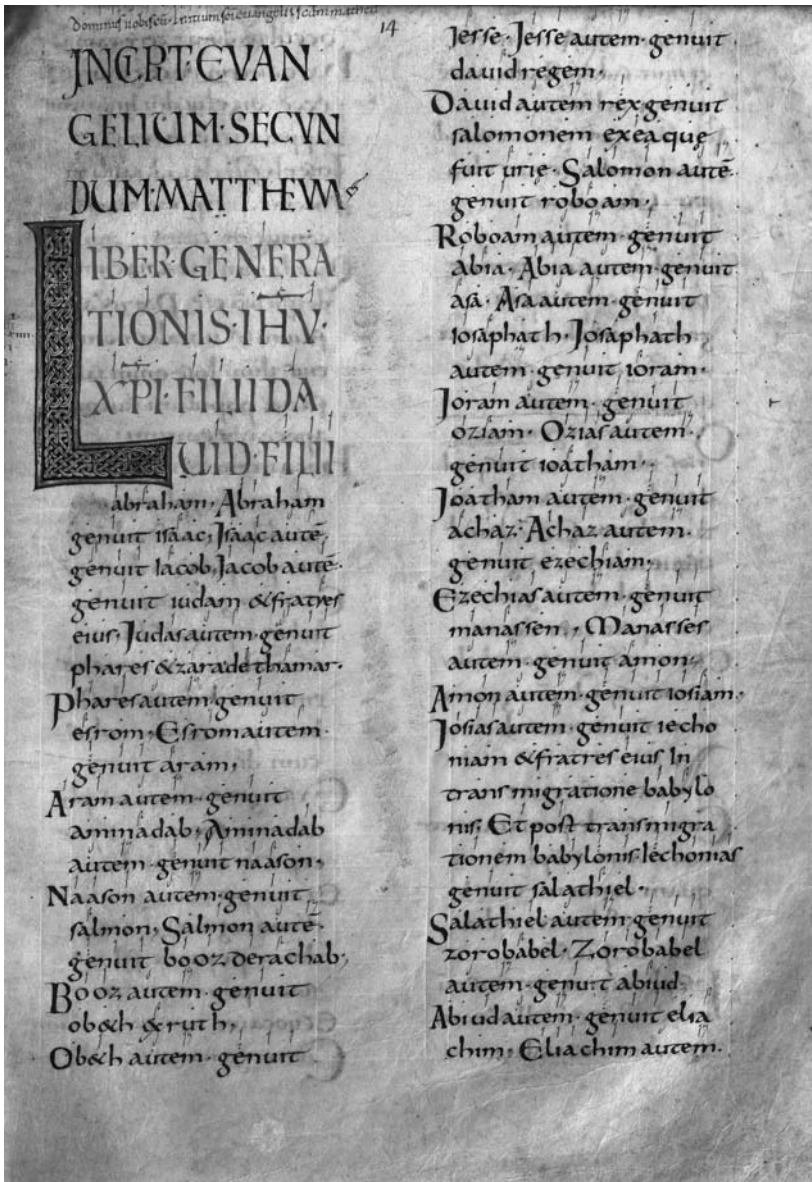 Dominus uobiscū. Initium sci euangelii scdm matheū
14
INCIPT·EVAN
GELIUM·SECVN
DUM·MATTHEVM
LIBER·GENERA
TIONIS·IHV·
XPI·FILII DA
UID·FILII
abraham. Abraham
genuit isaac, Isaac autē·
genuit iacob, Jacob autē·
genuit iudam & fratres
eius. Judas autem·genuit
phares & zara de thamar·
Phares autem genuit
esrom, Esrom autem·
genuit aram,
Aram autem·genuit
aminadab, Aminadab
autem·genuit naason,
Naason autem·genuit
salmon, Salmon autē·
genuit booz derachab,
Booz autem·genuit
ob&h & ruth,
Ob&h autem·genuit
iesse· Jesse autem·genuit
dauid regem·
Dauid autem rex genuit
salomonem ex ea que
fuit urie· Salomon autē·
genuit roboam,
Roboam autem·genuit
abia· Abia autem·genuit
asá· Asa autem·genuit
iosaphath· Josaphath
autem·genuit ioram·
Joram autem·genuit
oziam· Ozias autem·
genuit ioatham,
Joatham autem·genuit
achaz· Achaz autem·
genuit ezechiam,
Ezechias autem·genuit
manassen, Manasses
autem·genuit amon,
Amon autem·genuit iosiam·
Josias autem·genuit iecho
niam & fratres eius In
transmigratione babylo
nis; Et post transmigra
tionem babylonis· Iechonias
genuit salathiel·
Salathiel autem·genuit
zorobabel· Zorobabel
autem·genuit abiud
Abiud autem·genuit elia
chim, Eliachim autem·